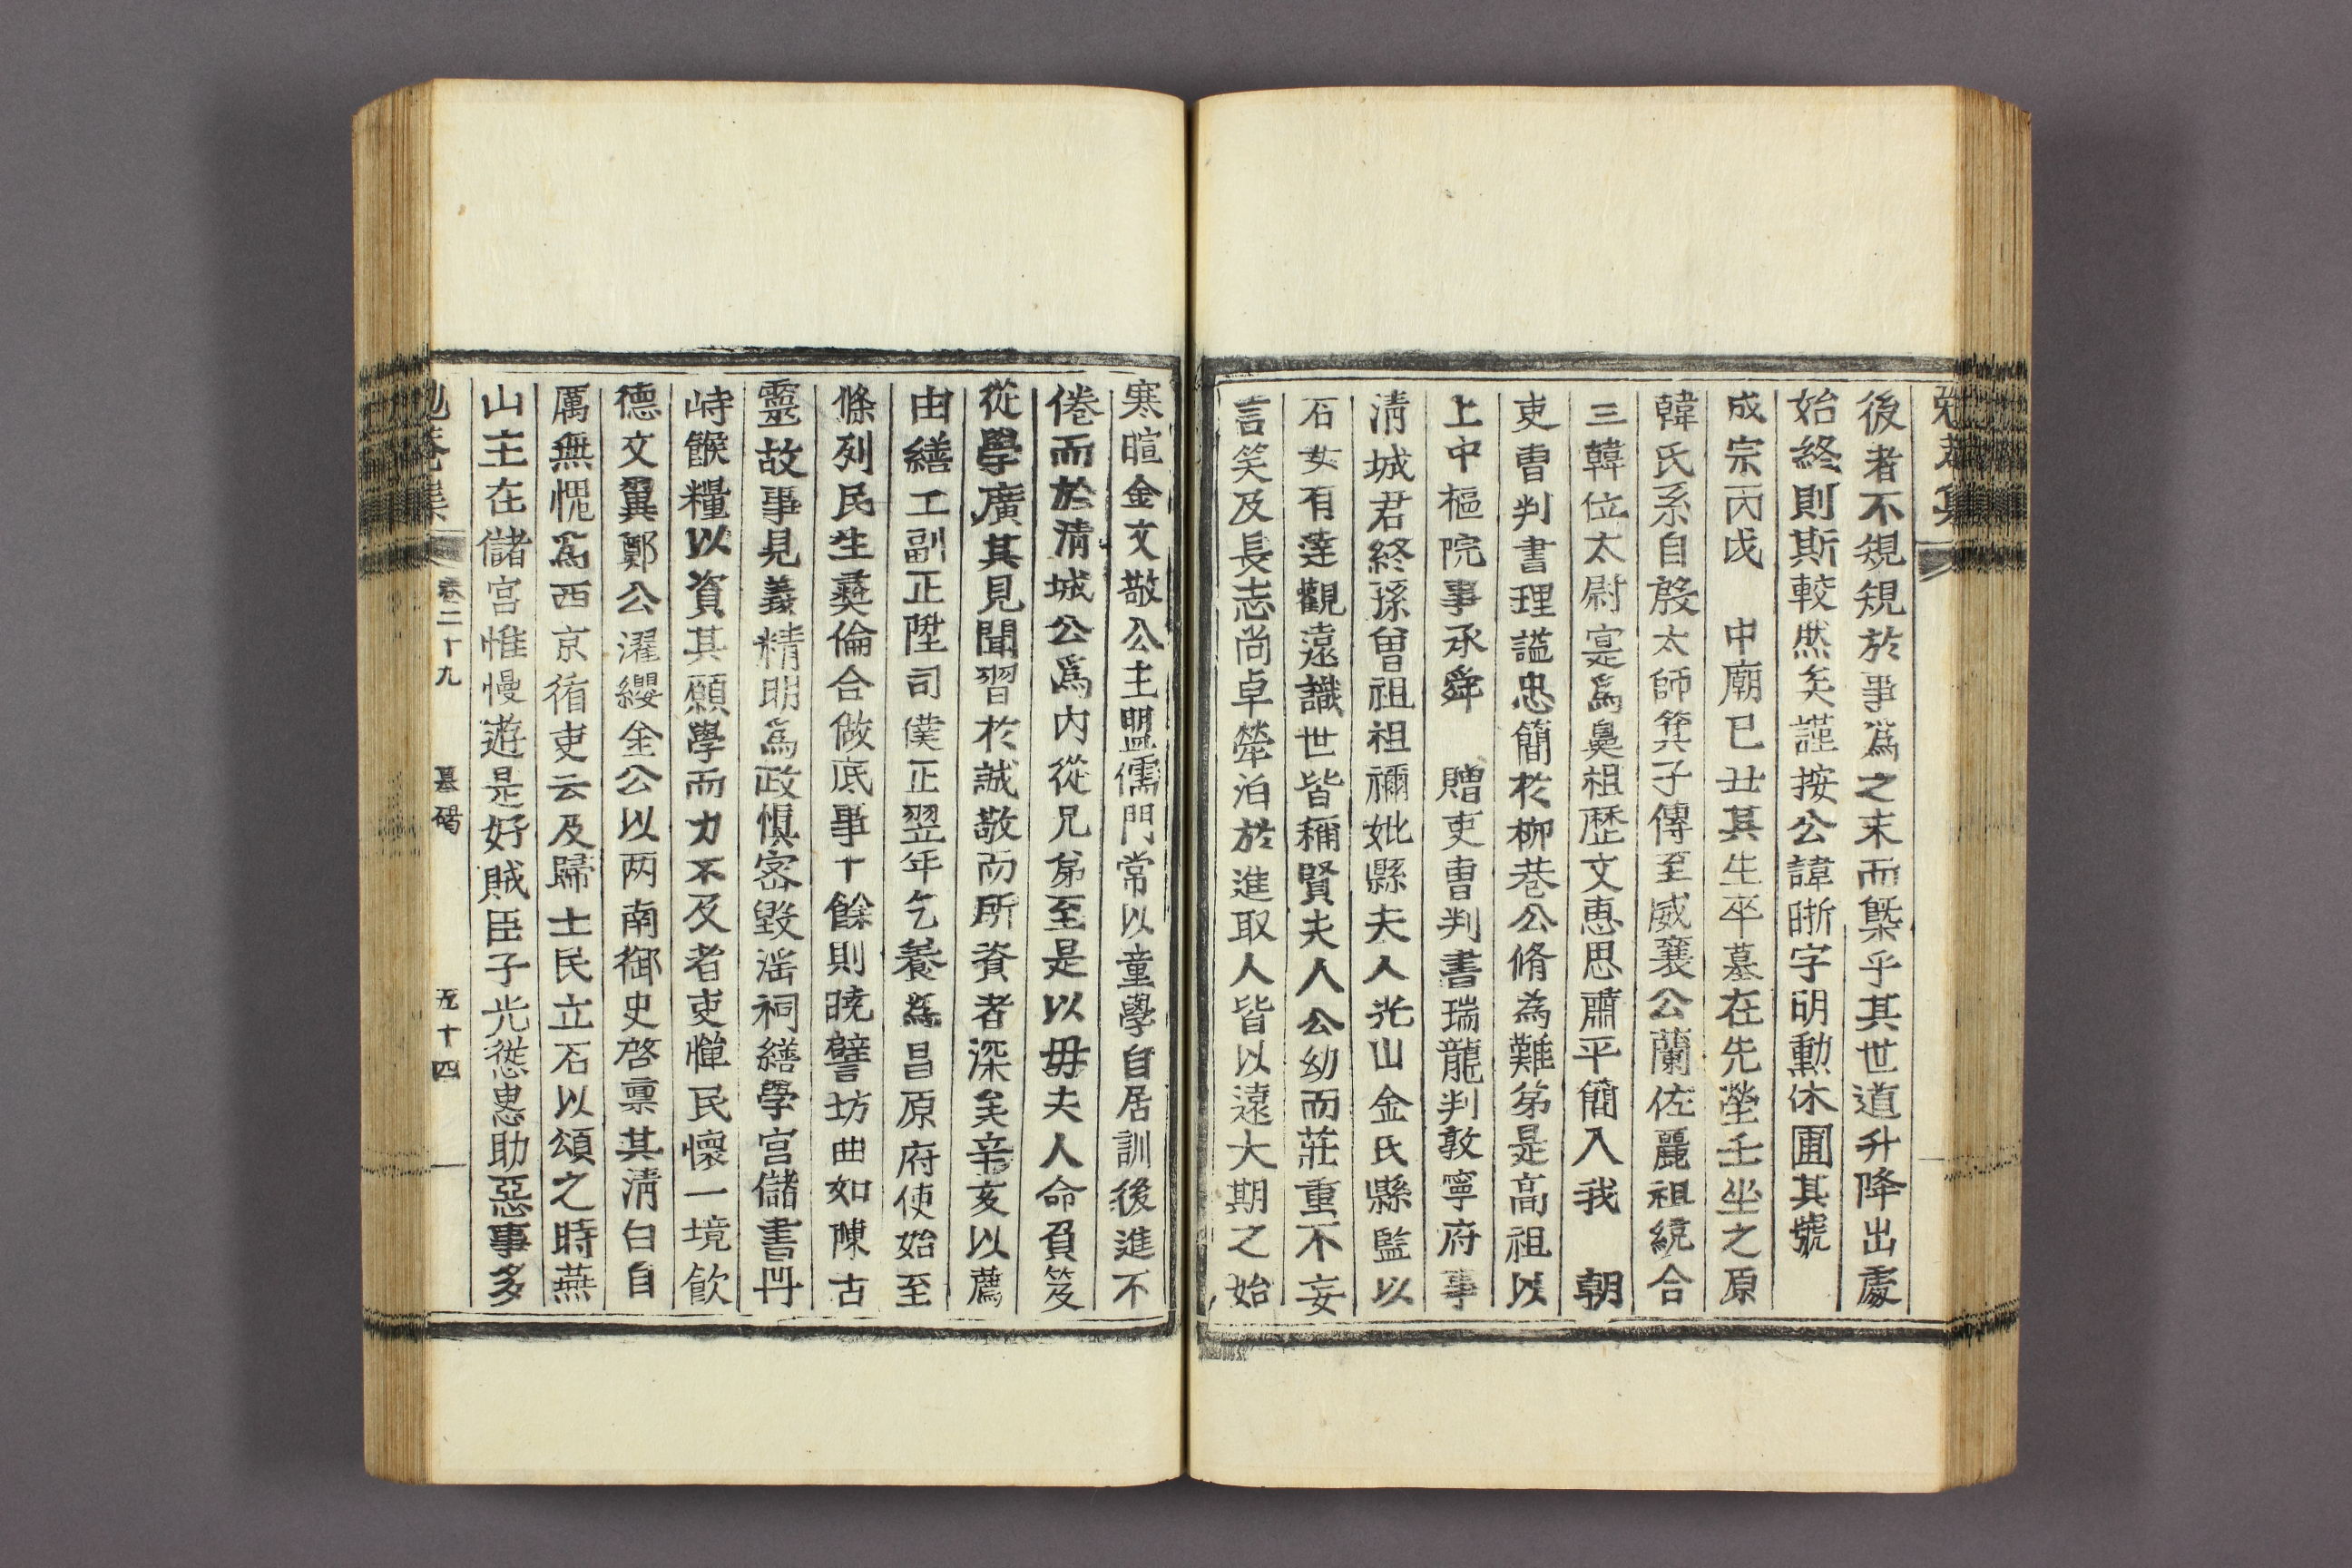 後者不規規於事爲之末而槩乎其世道升降出處
始終則斯較然矣謹按公諱晣字明勳休圃其號
成宗丙戌 中廟己丑其生卒墓在先塋壬坐之原
韓氏系自殷太師箕子傳至威襄公蘭佐麗祖統合
三韓位太尉寔爲鼻祖歷文惠思肅平簡入我 朝
吏曹判書理謚忠簡於柳巷公脩為難弟是高祖以
上中樞院事承舜 贈吏曹判書瑞龍判敦寧府事
淸城君終孫曾祖祖禰妣縣夫人光山金氏縣監以
石女有達觀遠識世皆稱賢夫人公幼而莊重不妄
言笑及長志尚卓犖泊於進取人皆以遠大期之始
寒暄金文敬公主盟儒門常以童學自居訓後進不
倦而於淸城公爲内從兄弟至是以毋夫人命負笈
從學廣其見聞習於誠敬而所資者深矣辛亥以薦
由繕工副正陞司僕正翌年乞養爲昌原府使始至
條列民生彛倫合做底事十餘則曉譬坊曲如陳古
靈故事見義精明爲政惧密毀滛祠繕學宫儲書卌
峙餱糧以資其願學而力不及者吏憚民懷一境飮
德文翼鄭公濯纓金公以两南御史啓禀其淸白自
厲無愧爲西京循吏云及歸士民立石以頌之時燕
山主在儲宫惟慢遊是好賊臣子光慫恿助惡事多
勉菴集 卷二十九 墓碣 五十四